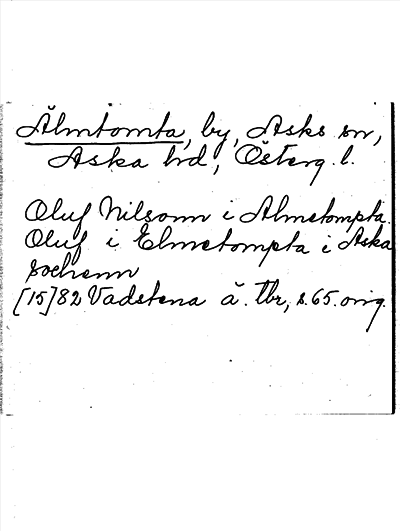 Älmtomta, by, Asks sn,
Aska hd, Österg. l.
Oluf Nilsonn i Almetompta.
Oluf i Elmetompta i Aska
sochenn
[15]82 Vadstena ä. Tbr, s. 65. orig.